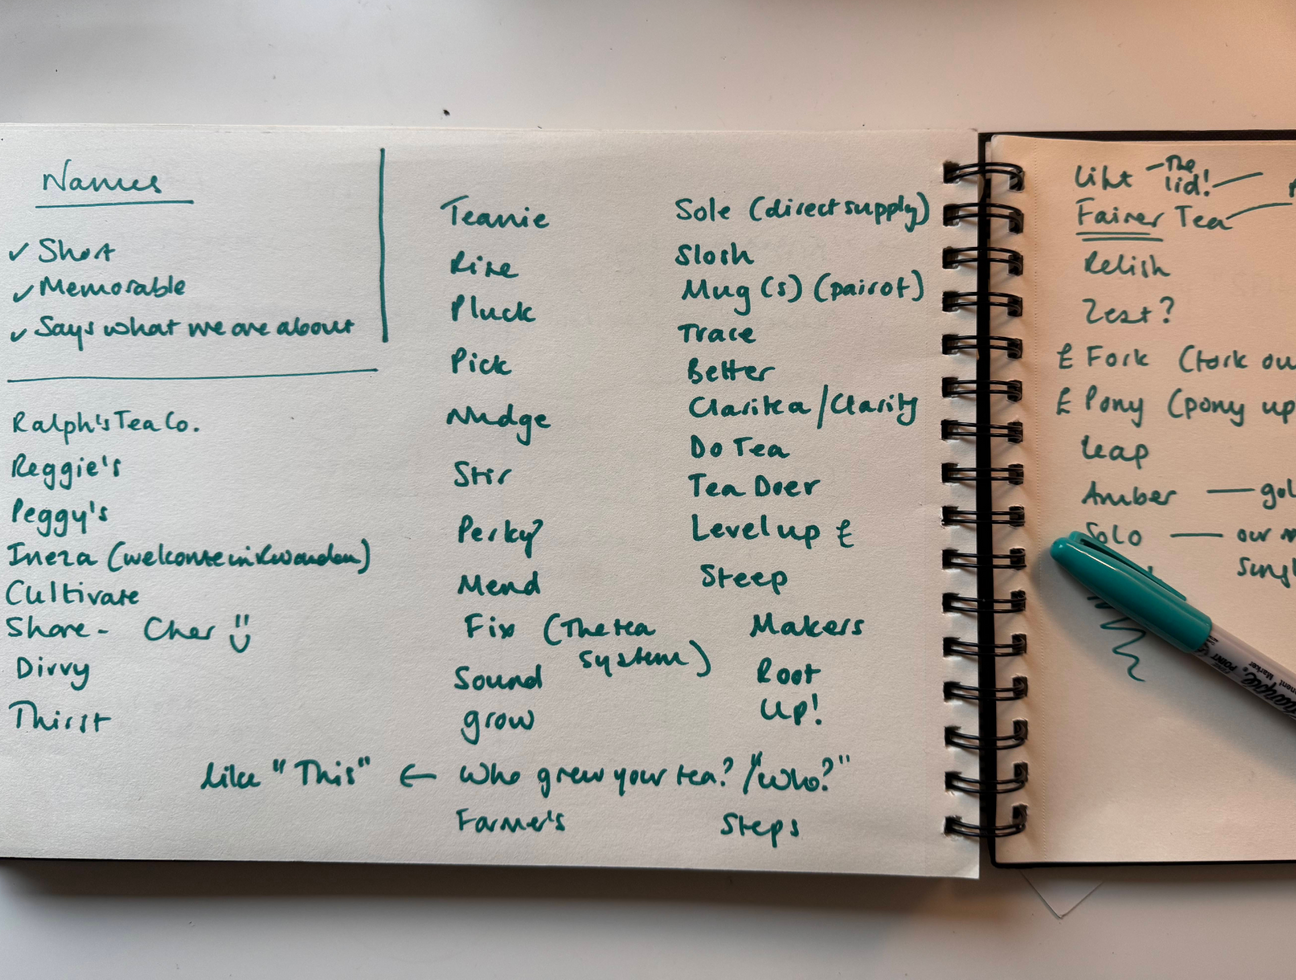 Names
✓ Short
✓ Memorable
✓ Says what we are about
Ralph's Tea Co.
Reggie's
Peggy's
Ineza (welcome in Rwandan)
Cultivate
Share - Cher
Divvy
Thirst
Teanie
Rise
Pluck
Pick
Nudge
Stir
Perky?
Mend
Fix (The tea
system)
Sound
grow
like "This" ← Who grew your tea? / "Who?"
Farmer's
Sole (direct supply)
Slosh
Mug(s) (pair of)
Trace
Better
Claritea / Clarity
Do Tea
Tea Doer
Level up £
Steep
Makers
Root
Up!
Steps
Lift - The
lid!
Fairer Tea
Relish
Zest?
£ Fork (fork ou
£ Pony (pony up
Leap
Amber — gol
Solo — our
singl